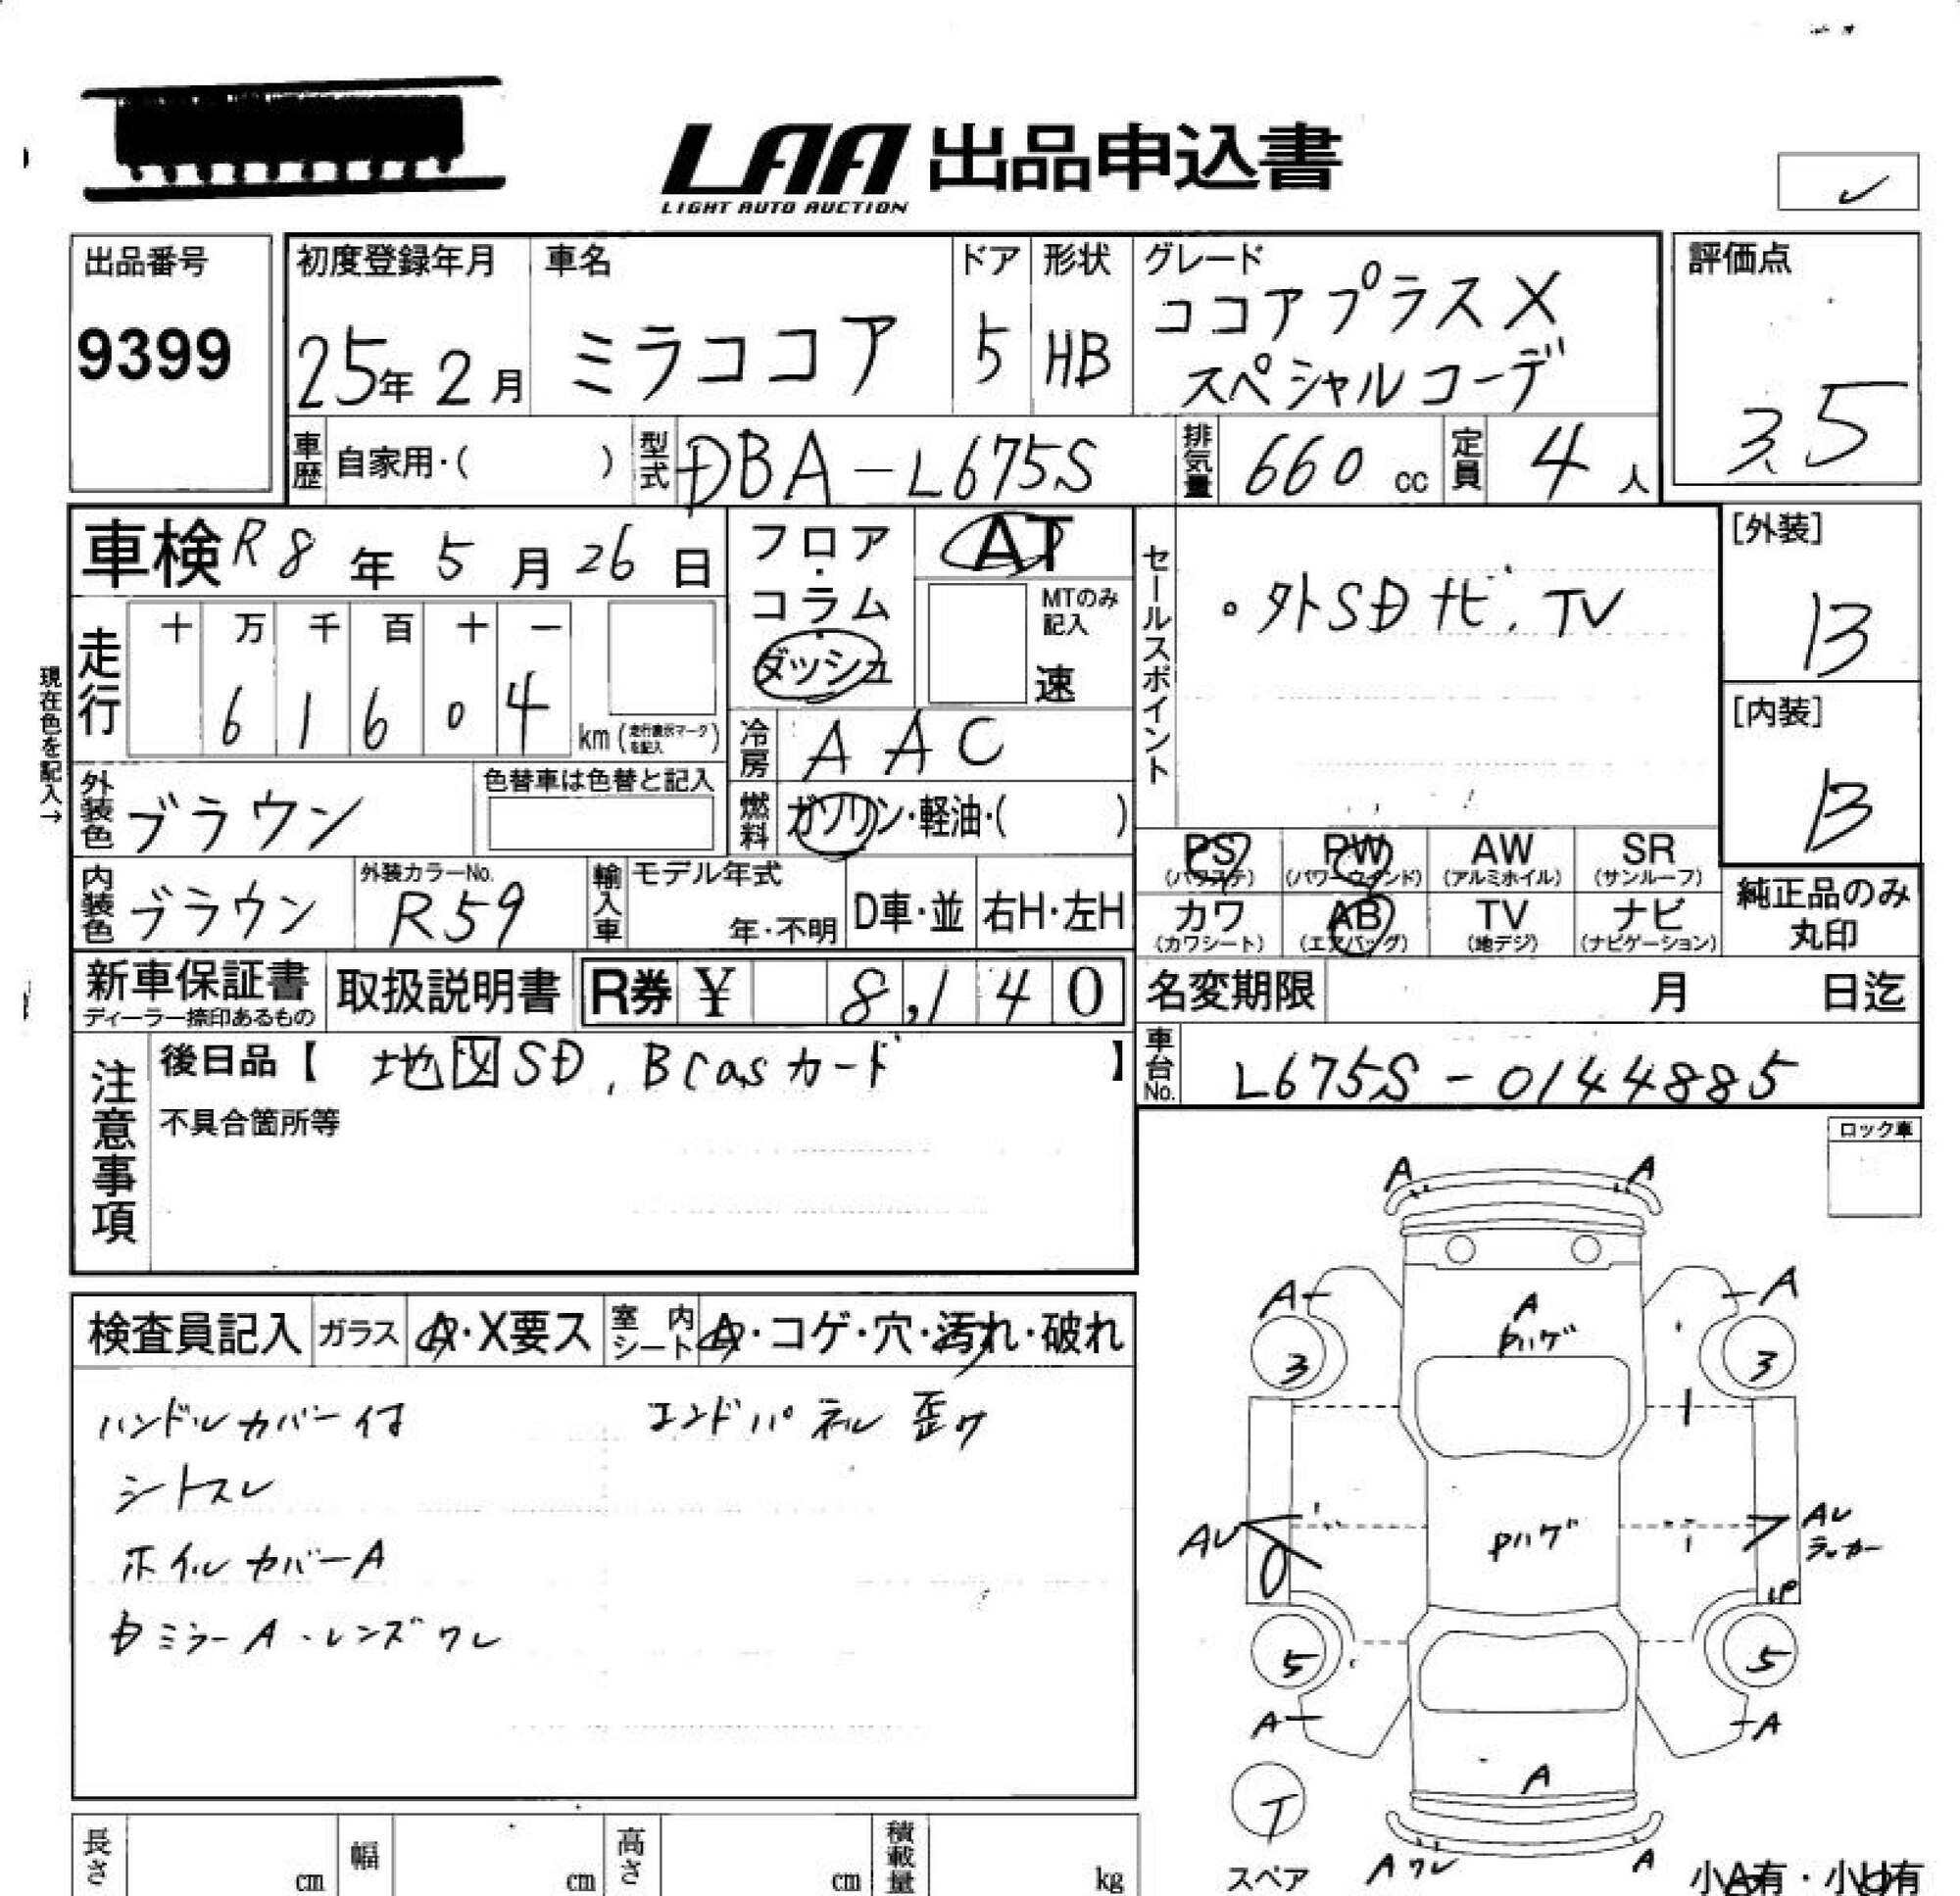 LAA 出品申込書
LIGHT AUTO AUCTION
出品番号
9399
初度登録年月
25年 2月
車名
ミラココア
ドア
5
形状
HB
グレード
ココアプラスX
スペシャルコーデ
評価点
3.5
車歴 自家用・( )
型式 DBA-L675S
排気量 660 cc
定員 4 人
車検 R8年 5月 26日
現在色を記入→
走行
十 万 千 百 十 一
6 1 6 0 4
km (走行表示マークを記入)
フロア・コラム・ダッシュ
AT
MTのみ記入
速
冷房 AAC
燃料 ガソリン・軽油・( )
外装色 ブラウン
色替車は色替と記入
内装色 ブラウン
外装カラーNo.
R59
輸入車
モデル年式
年・不明
D車・並
右H・左H
セールスポイント
。外SDナビ, TV
[外装]
B
[内装]
B
PS (パワステ)
PW (パワーウインド)
AW (アルミホイル)
SR (サンルーフ)
カワ (カワシート)
AB (エアバッグ)
TV (地デジ)
ナビ (ナビゲーション)
純正品のみ丸印
新車保証書
ディーラー捺印あるもの
取扱説明書
R券 ¥ 8,140
名変期限 月 日迄
車台No. L675S-0144885
注意事項
後日品【 地図SD, Bcasカード 】
不具合箇所等
ロック車
検査員記入
ガラス A・X要ス
室内シート A・コゲ・穴・汚れ・破れ
ハンドルカバー付
エンドパネル歪ケ
シートスレ
ホイルカバーA
ミラーA・レンズワレ
A A
A A
A
Pハゲ
3 3
Pハゲ
AU
AU
ラッカー
5 5
A A
A
T
スペア
Aワレ
A
小A有・小U有
長さ cm
幅 cm
高さ cm
積載量 kg